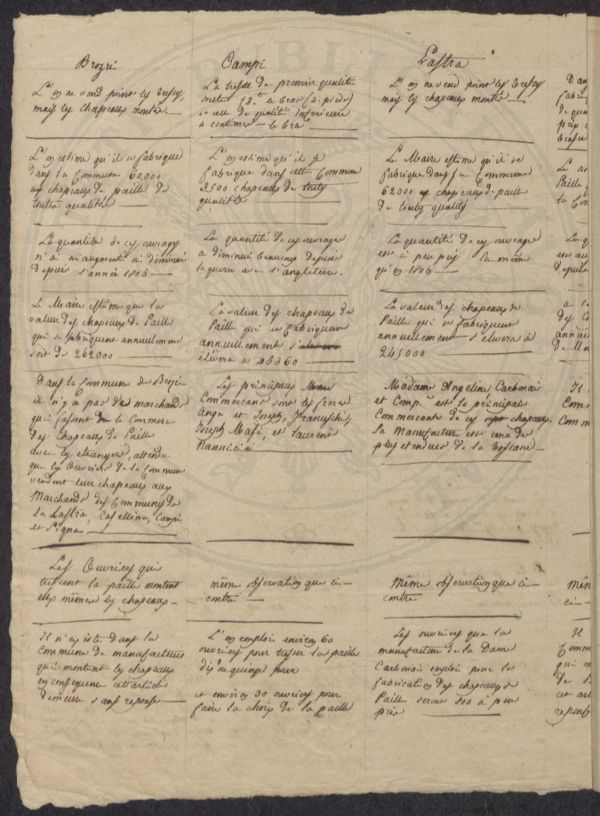 Brozzi
L'on ne vend point les tresses
mais les chapeaux montés
L'on estime qu'il se fabrique
dans la Commune 60,000
chapeaux de paille de
toutes qualités
La quantité de ces ouvrages
n'a ni augmenté ni diminué
depuis l'année 1806
Le Maire estime que la
valeur des chapeaux de Paille
qui se fabriquent annuellement
sont de 262000
Dans la Commune de Brozzi
il n'y a pas de marchands
qui fassent le Commerce
des Chapeaux de Paille
avec les etrangers, attendu
que les Ouvriers de la Commune
vendent leur chapeaux aux
Marchands des Communes de
La Lastra, Casellina, Campi
et Signa
Les Ouvriers qui
tressent la paille montent
elles mêmes les chapeaux
Il n'existe dans la
Commune de manufacteurs
qui montent les chapeaux
en consequence cet article
demeure sans reponse
Campi
La tresse de premier qualité
le bras (2. pieds)
et celle de qualité inferieure
4 centimes le bras
L'on estime qu'il se
fabrique dans cette Commune
2500 chapeaux de toutes
qualités
La quantité de ces ouvrages
a diminué beaucoup depuis
la guerre avec l'angleterre.
La valeur des chapeaux de
Paille qui se fabriquent
annuellement
élevera a 45360
Les principaux
Commercans sont les freres
Ange et Joseph,
Joseph Masi, et Laurent
Nannicini
même observation que ci-
contre
L'on emploi environ 60
ouvriers pour tresser la paille
et environ 30 ouvriers pour
faire la choix de la paille
Lastra
L'on ne vend point les tresses
mais les chapeaux montés
Le Maire estime qu'il se
fabrique dans sa Commune
62000 chapeaux de paille
de toutes qualités
La quantité de ces ouvrages
est à peu près la même
qu'en 1806
La valeur des chapeaux de
Paille qui se fabriquent
annuellement s'elevera à
245000
Madame Angeline Carbonai
et Comp. est la principale
Commercante de ces chapeaux,
sa Manufacture est une de
plus etendues de la Toscane
Même observation que ci-
contre
Les ouvriers que la
manufacture de la Dame
Carbonai emploi pour la
fabrication des chapeaux de
Paille 800 à peu
près